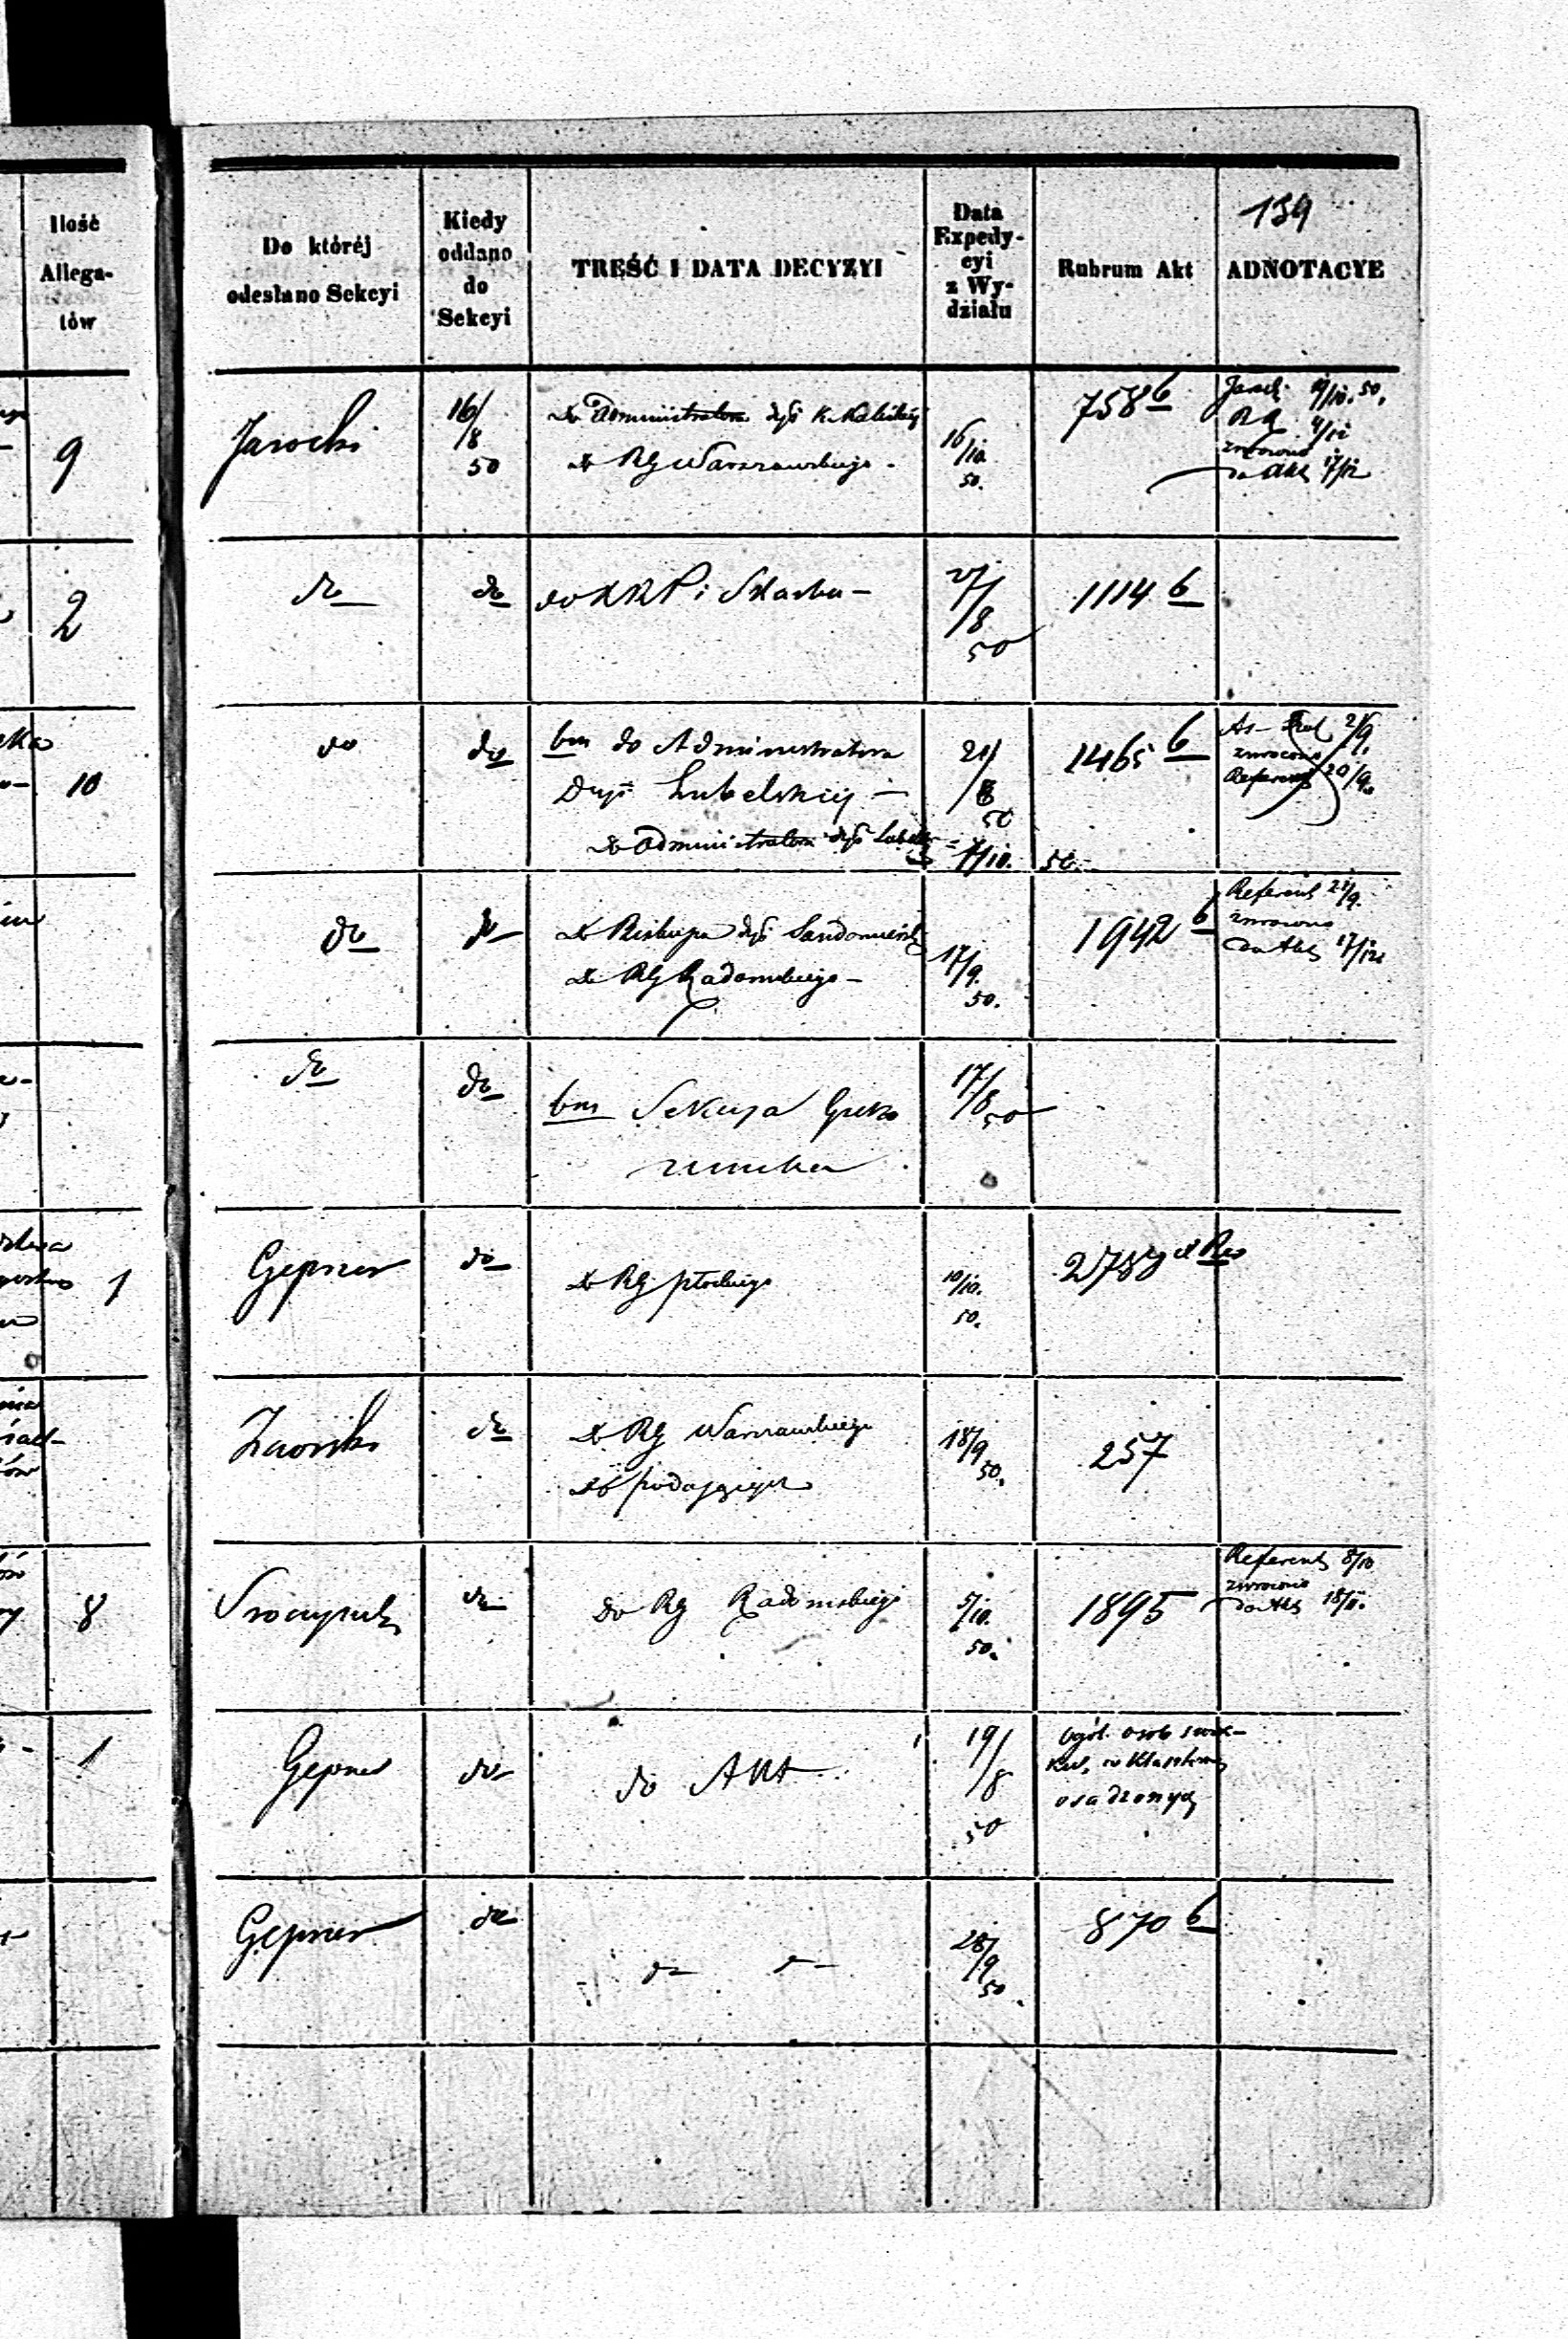 139
Ilość
Allega-
tów
Do któréj
odesłano Sekcyi
Kiedy
oddano
do
Sekcyi
TREŚĆ I DATA DECYZYI
Data
Expedy-
cyi
z Wy-
działu
Rubrum Akt
ADNOTACYE
9
Jarocki
16/
/8
50
do Administratora dyi K. Kaliskiej
do RG Warszawskiego
16/10
50.
758 b
9/10. 50.
RG 4/12
zwrócono
do Akt 17/12
2
do
do
do KRP i Skarbu
27/
/8
50
1114 b
10
do
do
bm do Administratora
Dyi Lubelskiej
do Administratora dyi Lubels
21/
/8
50
7/10. 50.
1465 b
2/9
zwrócono
Referent 20/9
do
do
do Biskupa dyi Sandomiersk
do RG Radomskiego
17/9.
50.
1942 b
Referent 21/9.
zwrócono
do Akt 17/12
do
do
bm Sekcya Greko
unicka
17/
/8 50
1
Gepner
do
do RG płockiego
10/10.
50.
do
do RG Warszawskiego
do podającego
18/9
50.
257
8
do
do RG Radomskiego
5/10.
50.
1895
Referent 8/10
zwrócono
do Akt 18/11.
1
Gepner
do
do Akt
19/
/8
50
ogól. osob
w Klasztorze
osadzonych
Gepner
do
do do
28/
/9
50
870 b